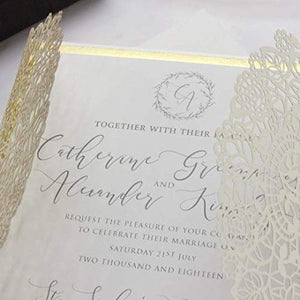 CA
TOGETHER WITH THEIR
Catherine
AND
Alexander
REQUEST THE PLEASURE OF YOUR
TO CELEBRATE THEIR MARRIAGE
SATURDAY 21ST JULY
TWO THOUSAND AND EIGHTEEN